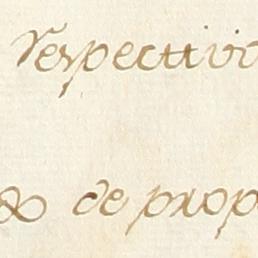 respectivo
do de prop